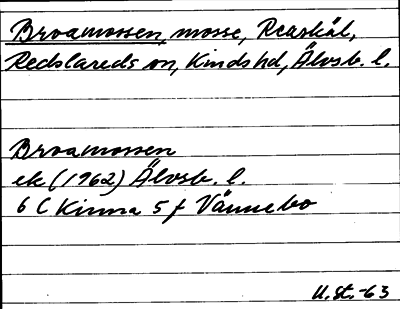 Broamossen, mosse, Reaskäl,
Redslareds sn, Kinds hd, Älvsb. l.
Broamossen
ek (1962) Älvsb. l.
6 C Kinna 5 f Vännebo
U. St. -63